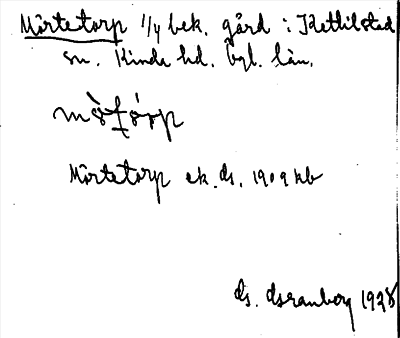 Mörtetorp 1/4 bek. gård i Kettilstad
sn. Kinda hd. Ögl. län.
Mörtetorp ek. ds. 1909 kb
ds. 1928